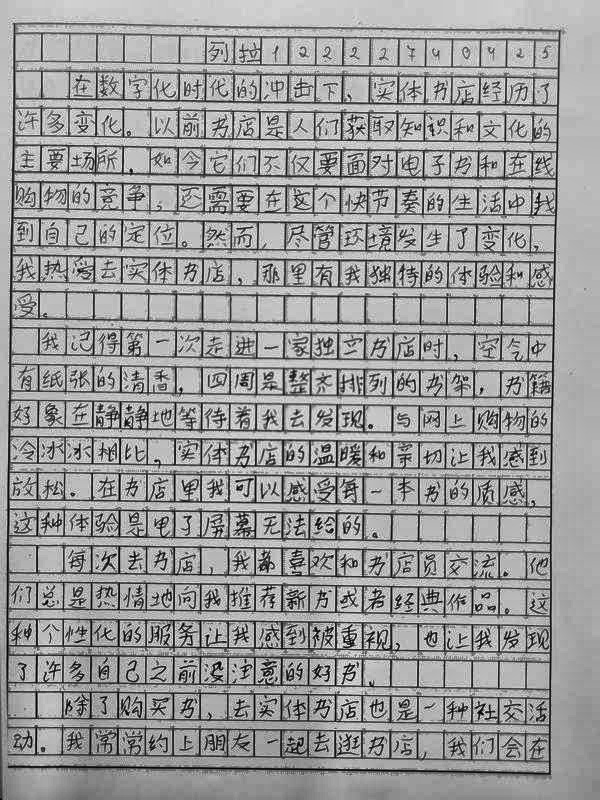 列拉12222740425
在数字化时代的冲击下，实体书店经历了
许多变化。以前书店是人们获取知识和文化的
主要场所，如今它们不仅要面对电子书和在线
购物的竞争，还需要在这个快节奏的生活中找
到自己的定位。然而，尽管环境发生了变化，
我热爱去实体书店，那里有我独特的体验和感
受。
我记得第一次走进一家独立书店时，空气中
有纸张的清香，四周是整齐排列的书架，书籍
好象在静静地等待着我去发现。与网上购物的
冷冰冰相比，实体书店的温暖和亲切让我感到
放松。在书店里我可以感受每一本书的质感，
这种体验是电子屏幕无法给的。
每次去书店，我都喜欢和书店员交流。他
们总是热情地向我推荐新书或者经典作品。这
种个性化的服务让我感到被重视，也让我发现
了许多自己之前没注意的好书。
除了购买书，去实体书店也是一种社交活
动。我常常约上朋友一起去逛书店，我们会在